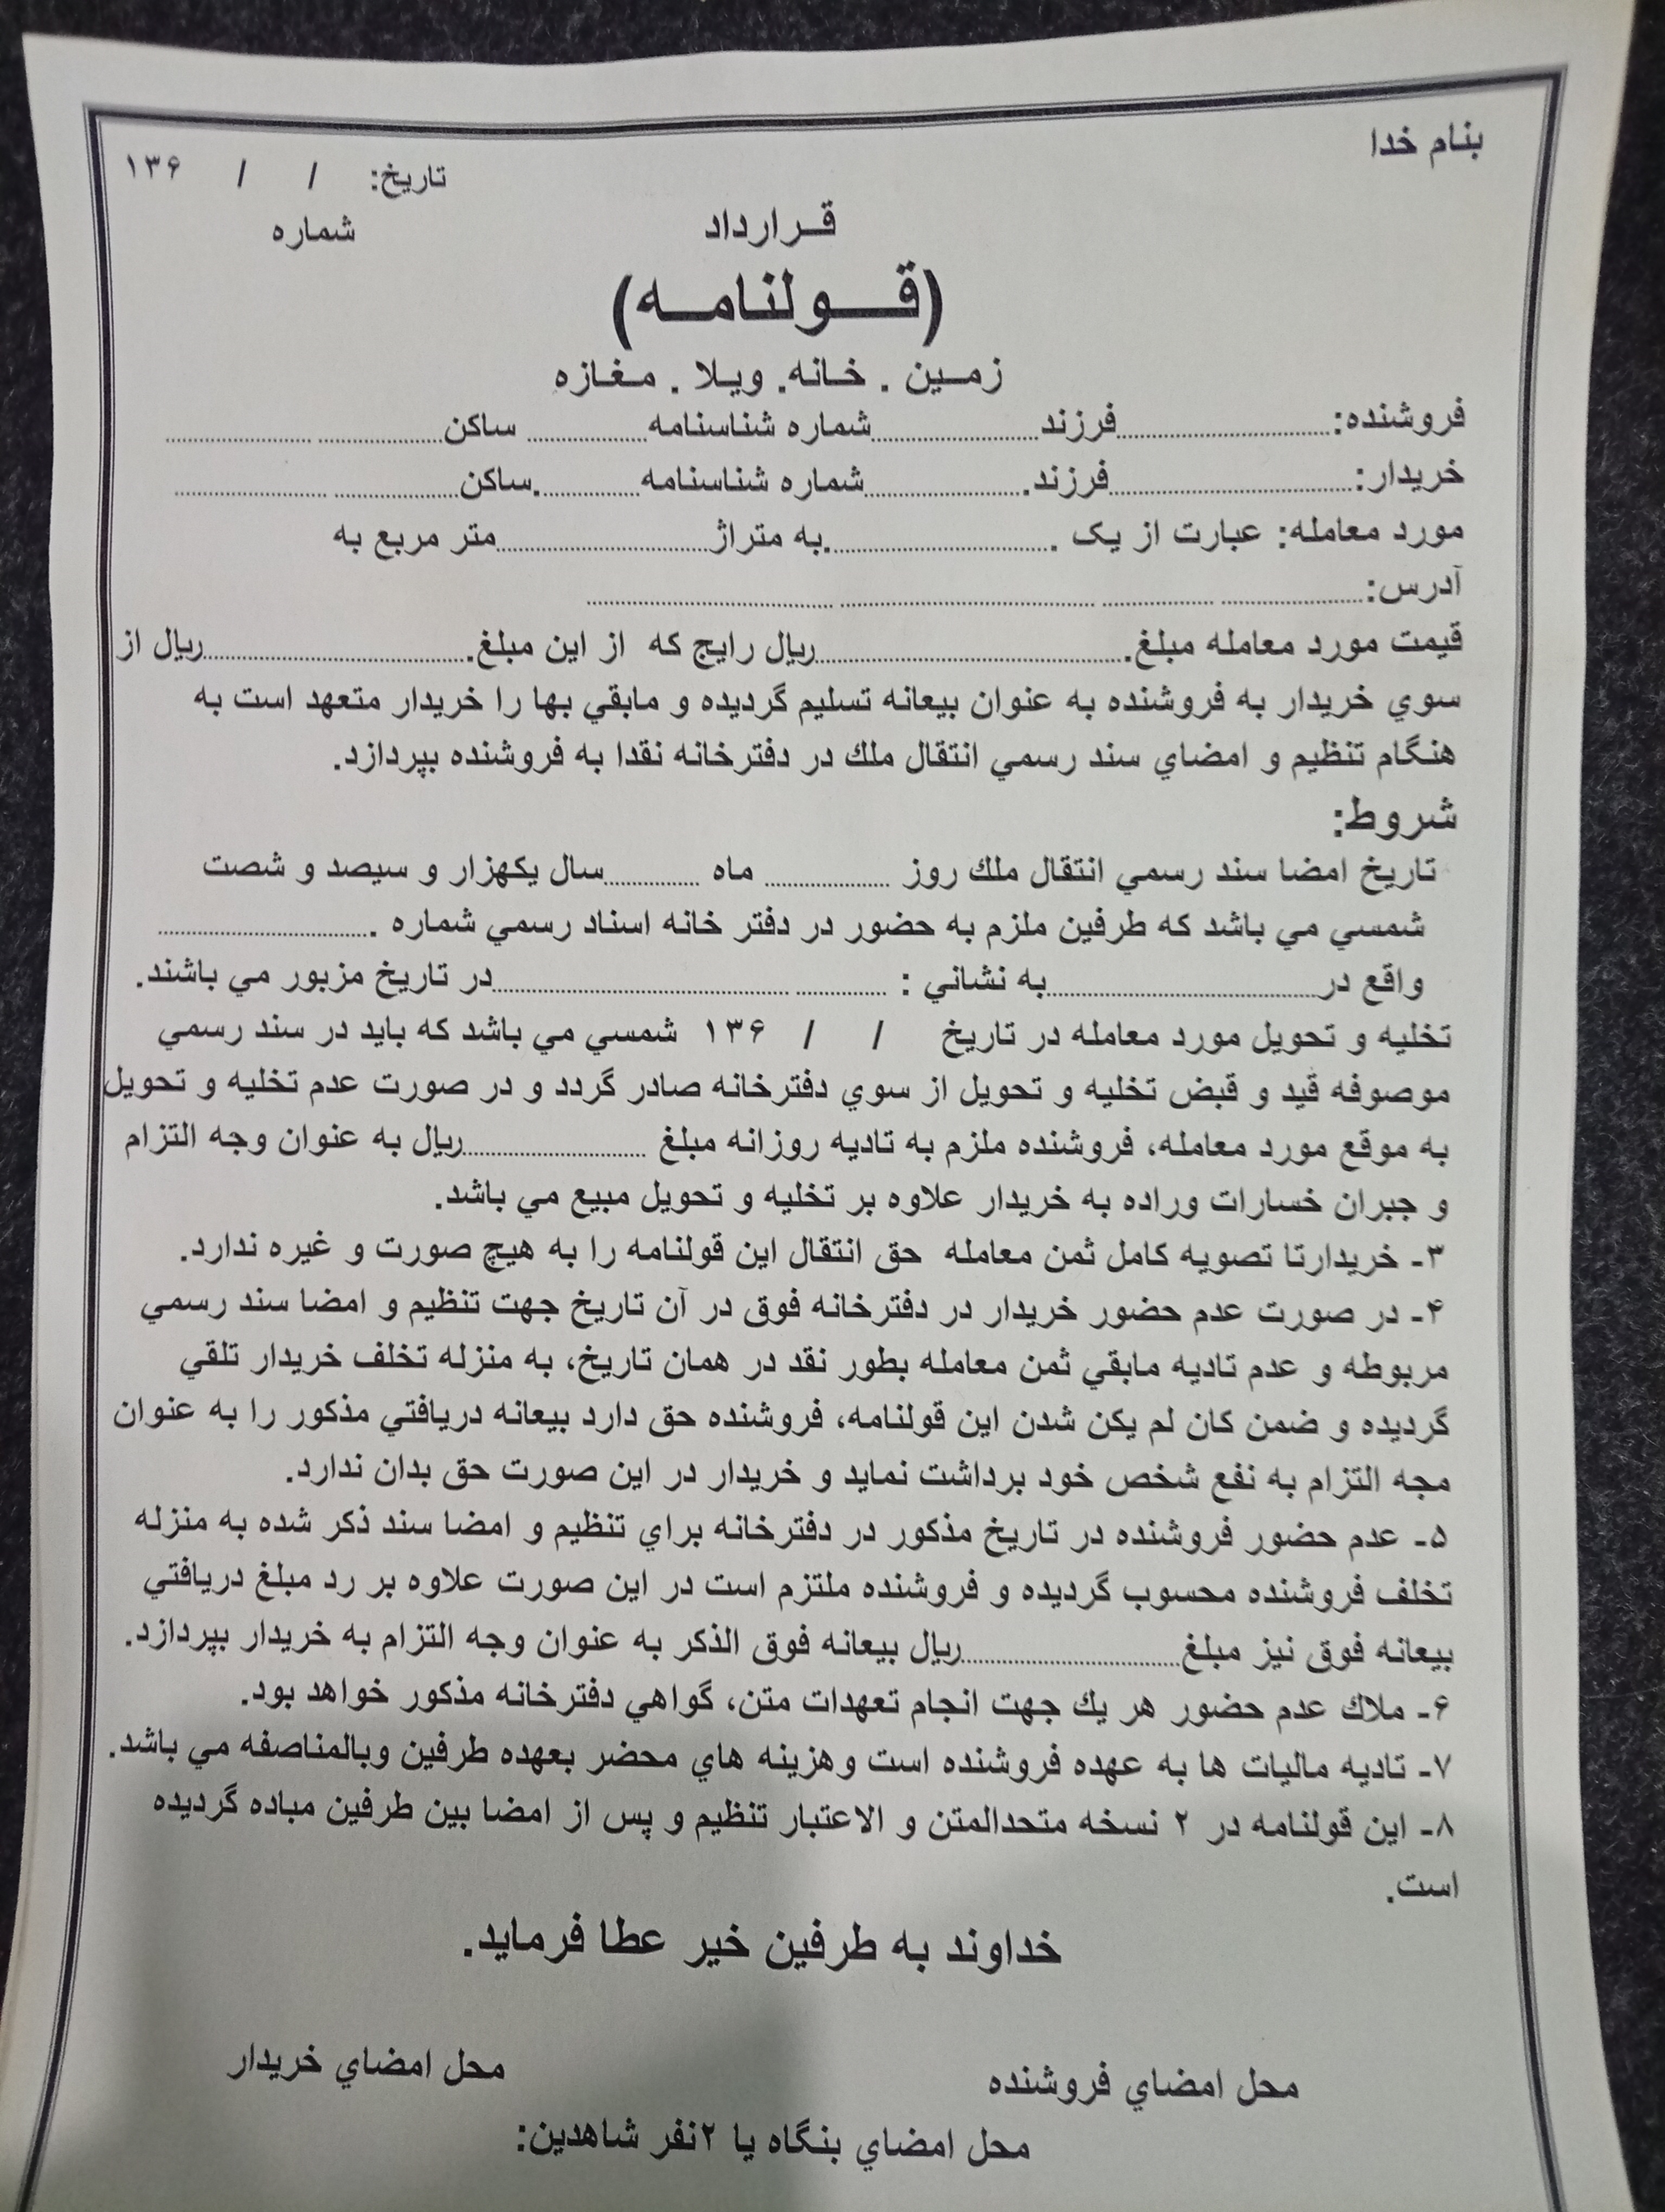 بنام خدا
تاریخ: / / ۱۳۶
شماره
قـرارداد
(قـــولنامـــه)
زمـین . خـانه. ویـلا . مـغـازه
فروشنده:..............................فرزند.........................شماره شناسنامه.................. ساکن................... ..........................
خریدار:...................................فرزند........................شماره شناسنامه...............ساکن................... ......................
مورد معامله: عبارت از یک ...............................به متراژ..............................متر مربع به
آدرس:.................... ................ ..................................... ...................................
قیمت مورد معامله مبلغ............................................ریال رایج که از این مبلغ......................................ریال از
سوي خریدار به فروشنده به عنوان بیعانه تسلیم گردیده و مابقي بها را خریدار متعهد است به
هنگام تنظیم و امضاي سند رسمي انتقال ملك در دفترخانه نقدا به فروشنده بپردازد.
شروط:
تاریخ امضا سند رسمي انتقال ملك روز .................. ماه ..............سال یکهزار و سیصد و شصت
شمسي مي باشد که طرفین ملزم به حضور در دفتر خانه اسناد رسمي شماره ...............................
واقع در.......................................به نشاني : ............. ...........................................در تاریخ مزبور مي باشند.
تخلیه و تحویل مورد معامله در تاریخ / / ۱۳۶ شمسي مي باشد که باید در سند رسمي
موصوفه قید و قبض تخلیه و تحویل از سوي دفترخانه صادر گردد و در صورت عدم تخلیه و تحویل
به موقع مورد معامله، فروشنده ملزم به تادیه روزانه مبلغ ..........................ریال به عنوان وجه التزام
و جبران خسارات وراده به خریدار علاوه بر تخلیه و تحویل مبیع مي باشد.
۳- خریدارتا تصویه کامل ثمن معامله حق انتقال این قولنامه را به هیچ صورت و غیره ندارد.
۴- در صورت عدم حضور خریدار در دفترخانه فوق در آن تاریخ جهت تنظیم و امضا سند رسمي
مربوطه و عدم تادیه مابقي ثمن معامله بطور نقد در همان تاریخ، به منزله تخلف خریدار تلقي
گردیده و ضمن کان لم یکن شدن این قولنامه، فروشنده حق دارد بیعانه دریافتي مذکور را به عنوان
مجه التزام به نفع شخص خود برداشت نماید و خریدار در این صورت حق بدان ندارد.
۵- عدم حضور فروشنده در تاریخ مذکور در دفترخانه براي تنظیم و امضا سند ذکر شده به منزله
تخلف فروشنده محسوب گردیده و فروشنده ملتزم است در این صورت علاوه بر رد مبلغ دریافتي
بیعانه فوق نیز مبلغ................................ریال بیعانه فوق الذکر به عنوان وجه التزام به خریدار بپردازد.
۶- ملاك عدم حضور هر یك جهت انجام تعهدات متن، گواهي دفترخانه مذکور خواهد بود.
۷- تادیه مالیات ها به عهده فروشنده است وهزینه هاي محضر بعهده طرفین وبالمناصفه مي باشد.
۸- این قولنامه در ۲ نسخه متحدالمتن و الاعتبار تنظیم و پس از امضا بین طرفین مباده گردیده
است.
خداوند به طرفین خیر عطا فرماید.
محل امضاي فروشنده
محل امضاي خریدار
محل امضاي بنگاه یا ۲نفر شاهدین: